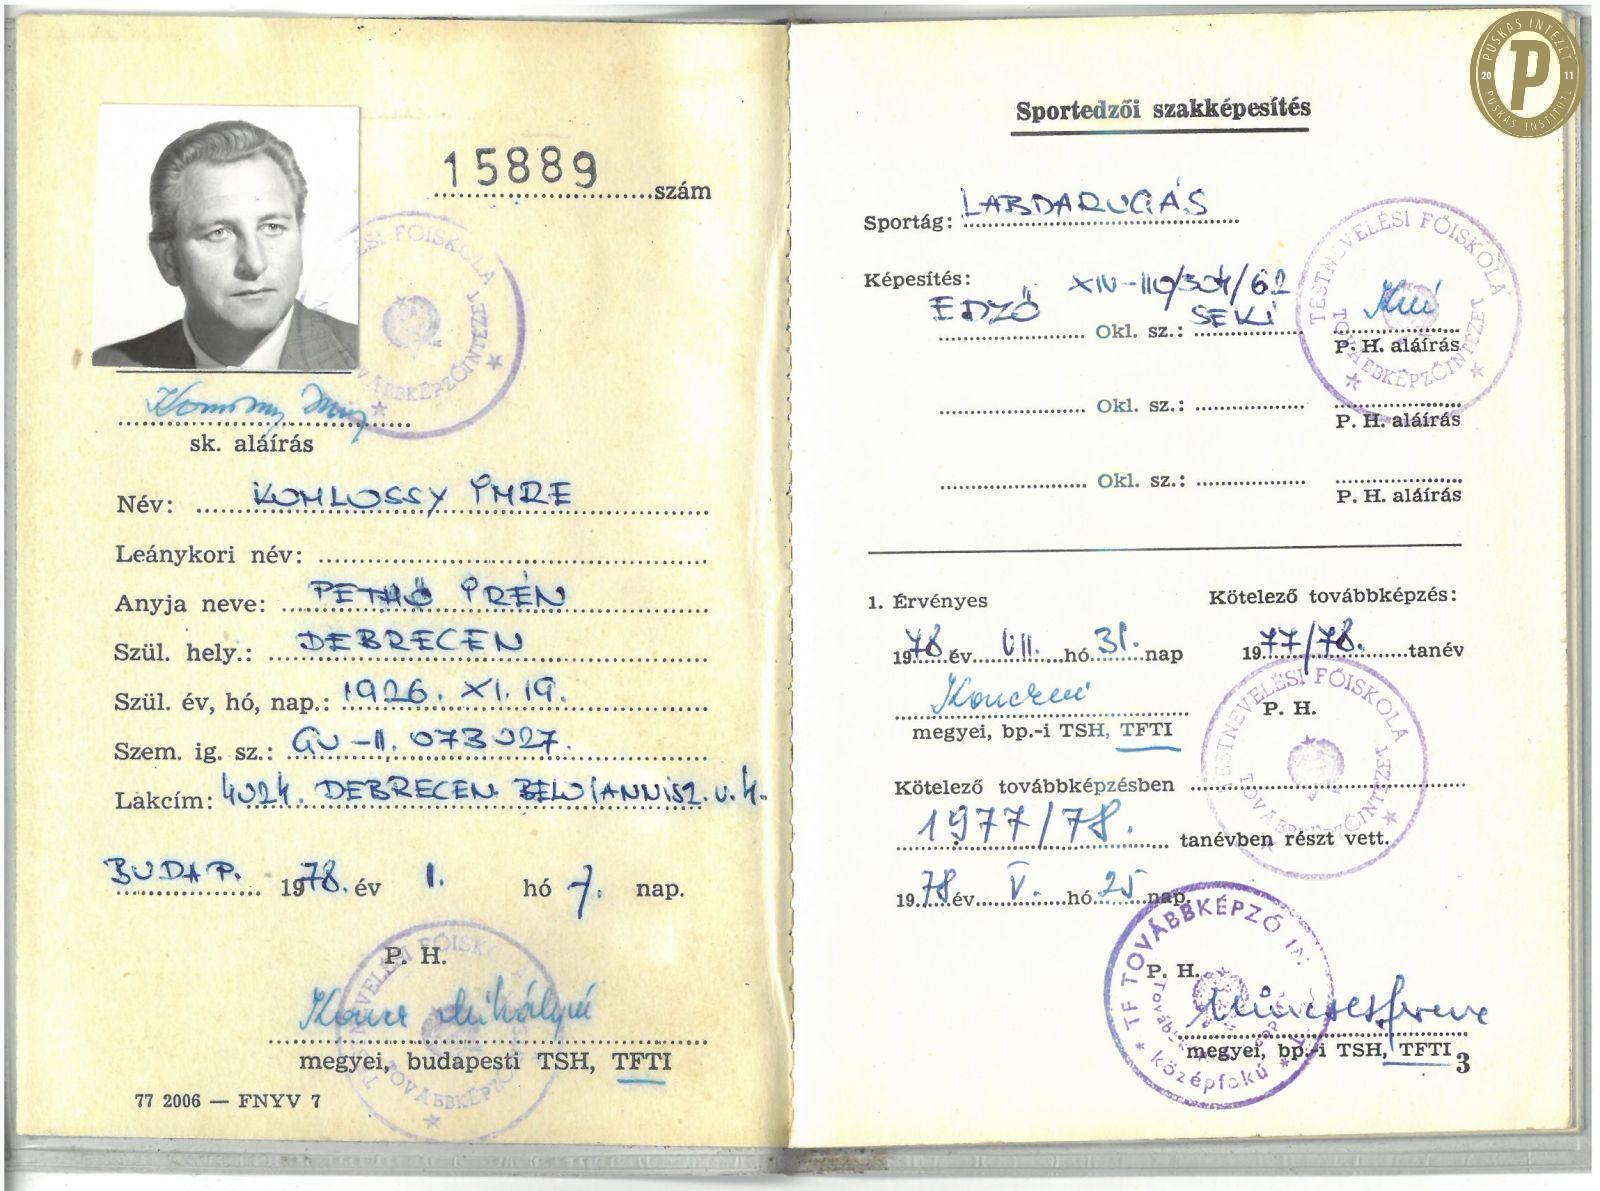 15889 szám
sk. aláírás
Név: KOMLOSSY IMRE
Leánykori név:
Anyja neve: PETHŐ IRÉN
Szül. hely.: DEBRECEN
Szül. év, hó, nap.: 1926. XI. 19.
Szem. ig. sz.: GU-II. 073027.
Lakcím: 4024. DEBRECEN. BELOIANNISZ. U. 4.
BUDAP. 1978. év I. hó 7. nap.
P. H.
megyei, budapesti TSH, TFTI
77 2006 — FNYV 7
TESTNEVELÉSI FŐISKOLA
TOVÁBBKÉPZŐINTÉZET
PUSKÁS INTÉZET
2011
P
PUSKAS INSTITUTE
Sportedzői szakképesítés
Sportág: LABDARUGÁS
Képesítés:
EDZŐ Okl. sz.: XIV-110/304/62
P. H. aláírás
Okl. sz.:
P. H. aláírás
Okl. sz.:
P. H. aláírás
TESTNEVELÉSI FŐISKOLA
TOVÁBBKÉPZŐINTÉZET
1. Érvényes
Kötelező továbbképzés:
1978 év VII. hó 31. nap
1977/78. tanév
P. H.
megyei, bp.-i TSH, TFTI
TESTNEVELÉSI FŐISKOLA
TOVÁBBKÉPZŐINTÉZET
Kötelező továbbképzésben
1977/78. tanévben részt vett.
1978 év V. hó 25 nap.
P. H.
TF TOVÁBBKÉPZŐ IN
középfokú
megyei, bp.-i TSH, TFTI
3